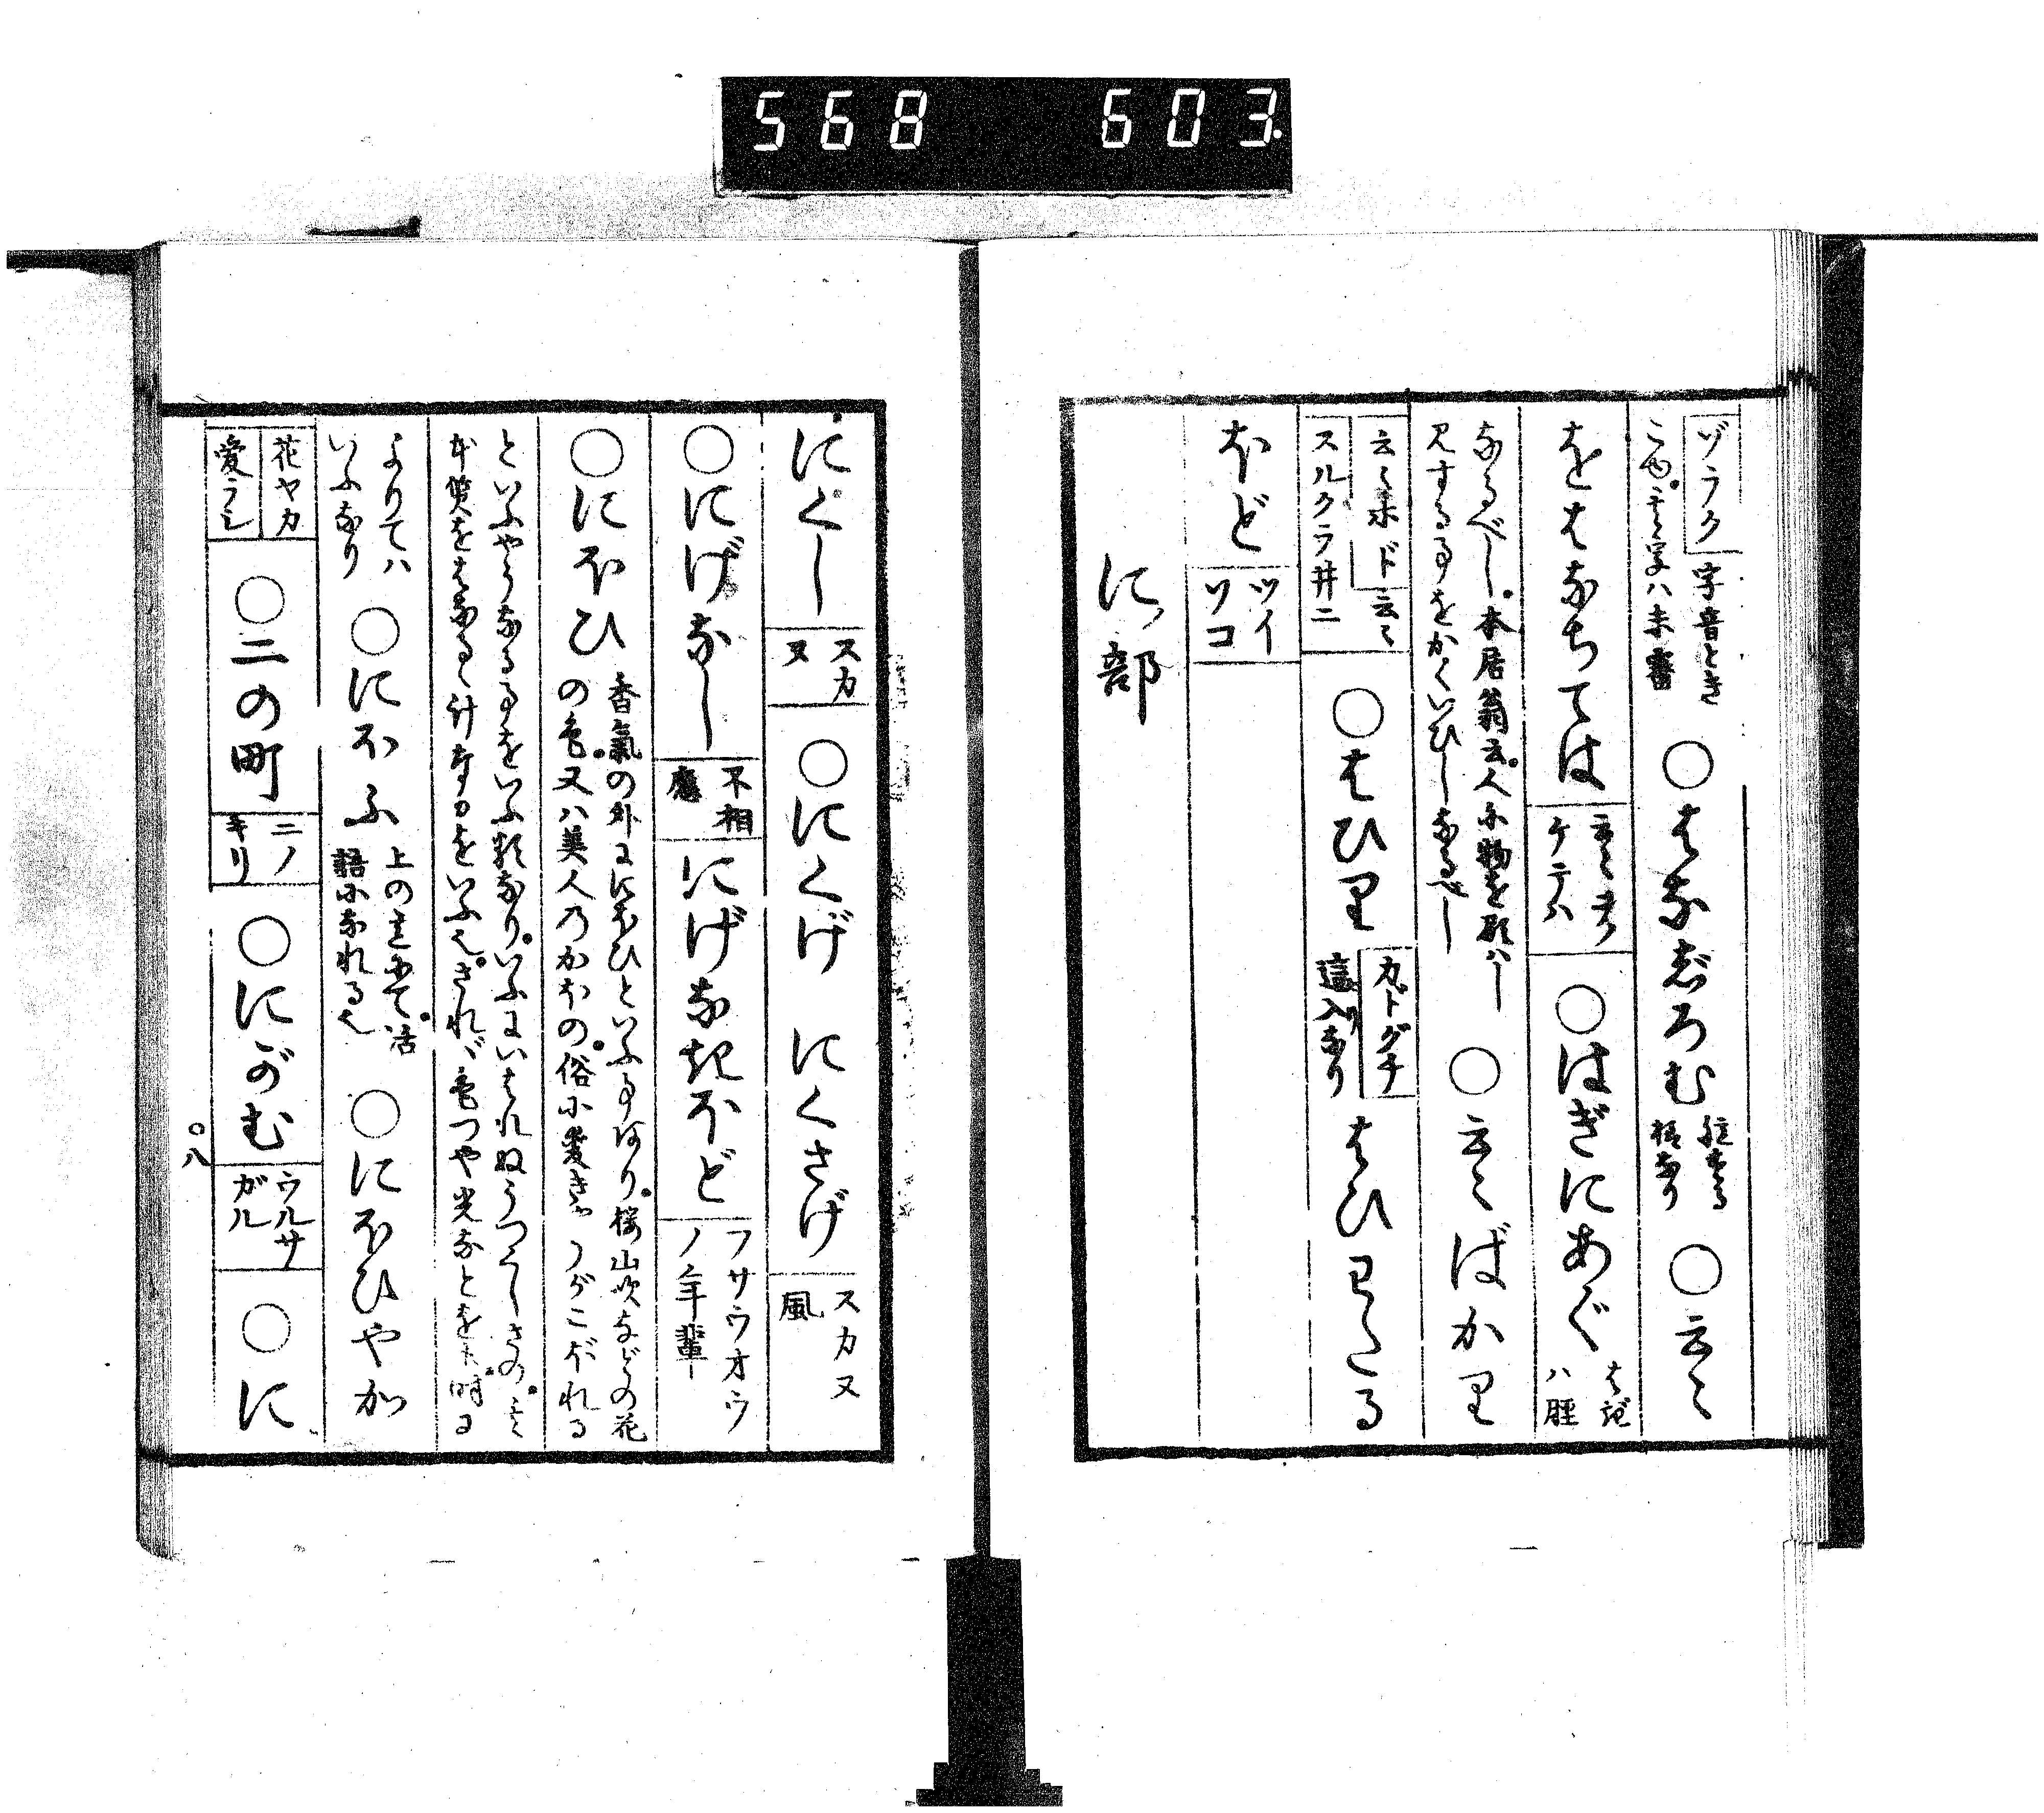 568 603
ヅラク 字音とき
こゆ。云々字ハ未審
○はなじろむ
語なり
○云々
をはなちては
云々ヲノ
ケテハ
○はぎにあぐ
はぎ
ハ脛
なるべし。本居翁云。人に物を
見する事をかくいひしなるべし
○云々ばかり
云々ホド云々
スルクラ井ニ
○はひり
カドグチ
這入なり
はひりたる
ほど
ツイ
ソコ
に部
にくし
スカ
ヌ
○にくげ にくさげ
スカヌ
風
○にげなし
不相
應
にげなきほど
フサウオウ
ノ年輩
○にほひ
香氣の外ににほひといふ事あり。桜山吹などの花
の色。又ハ美人乃かほの。俗に愛きやうがこぼれる
といふやうなる事をいふ類なり。いふにいはれぬうつくしさの。云々
本質をはなるゝ計なるをいふ也。されバ色つや光などを。時に
よりてハ
いふなり
○にほふ
上の言を。活
語になれる也
○にほひやか
花ヤカ
愛ラシ
○二の町
二ノ
キリ
○にがむ
ウルサ
ガル
○に
○八